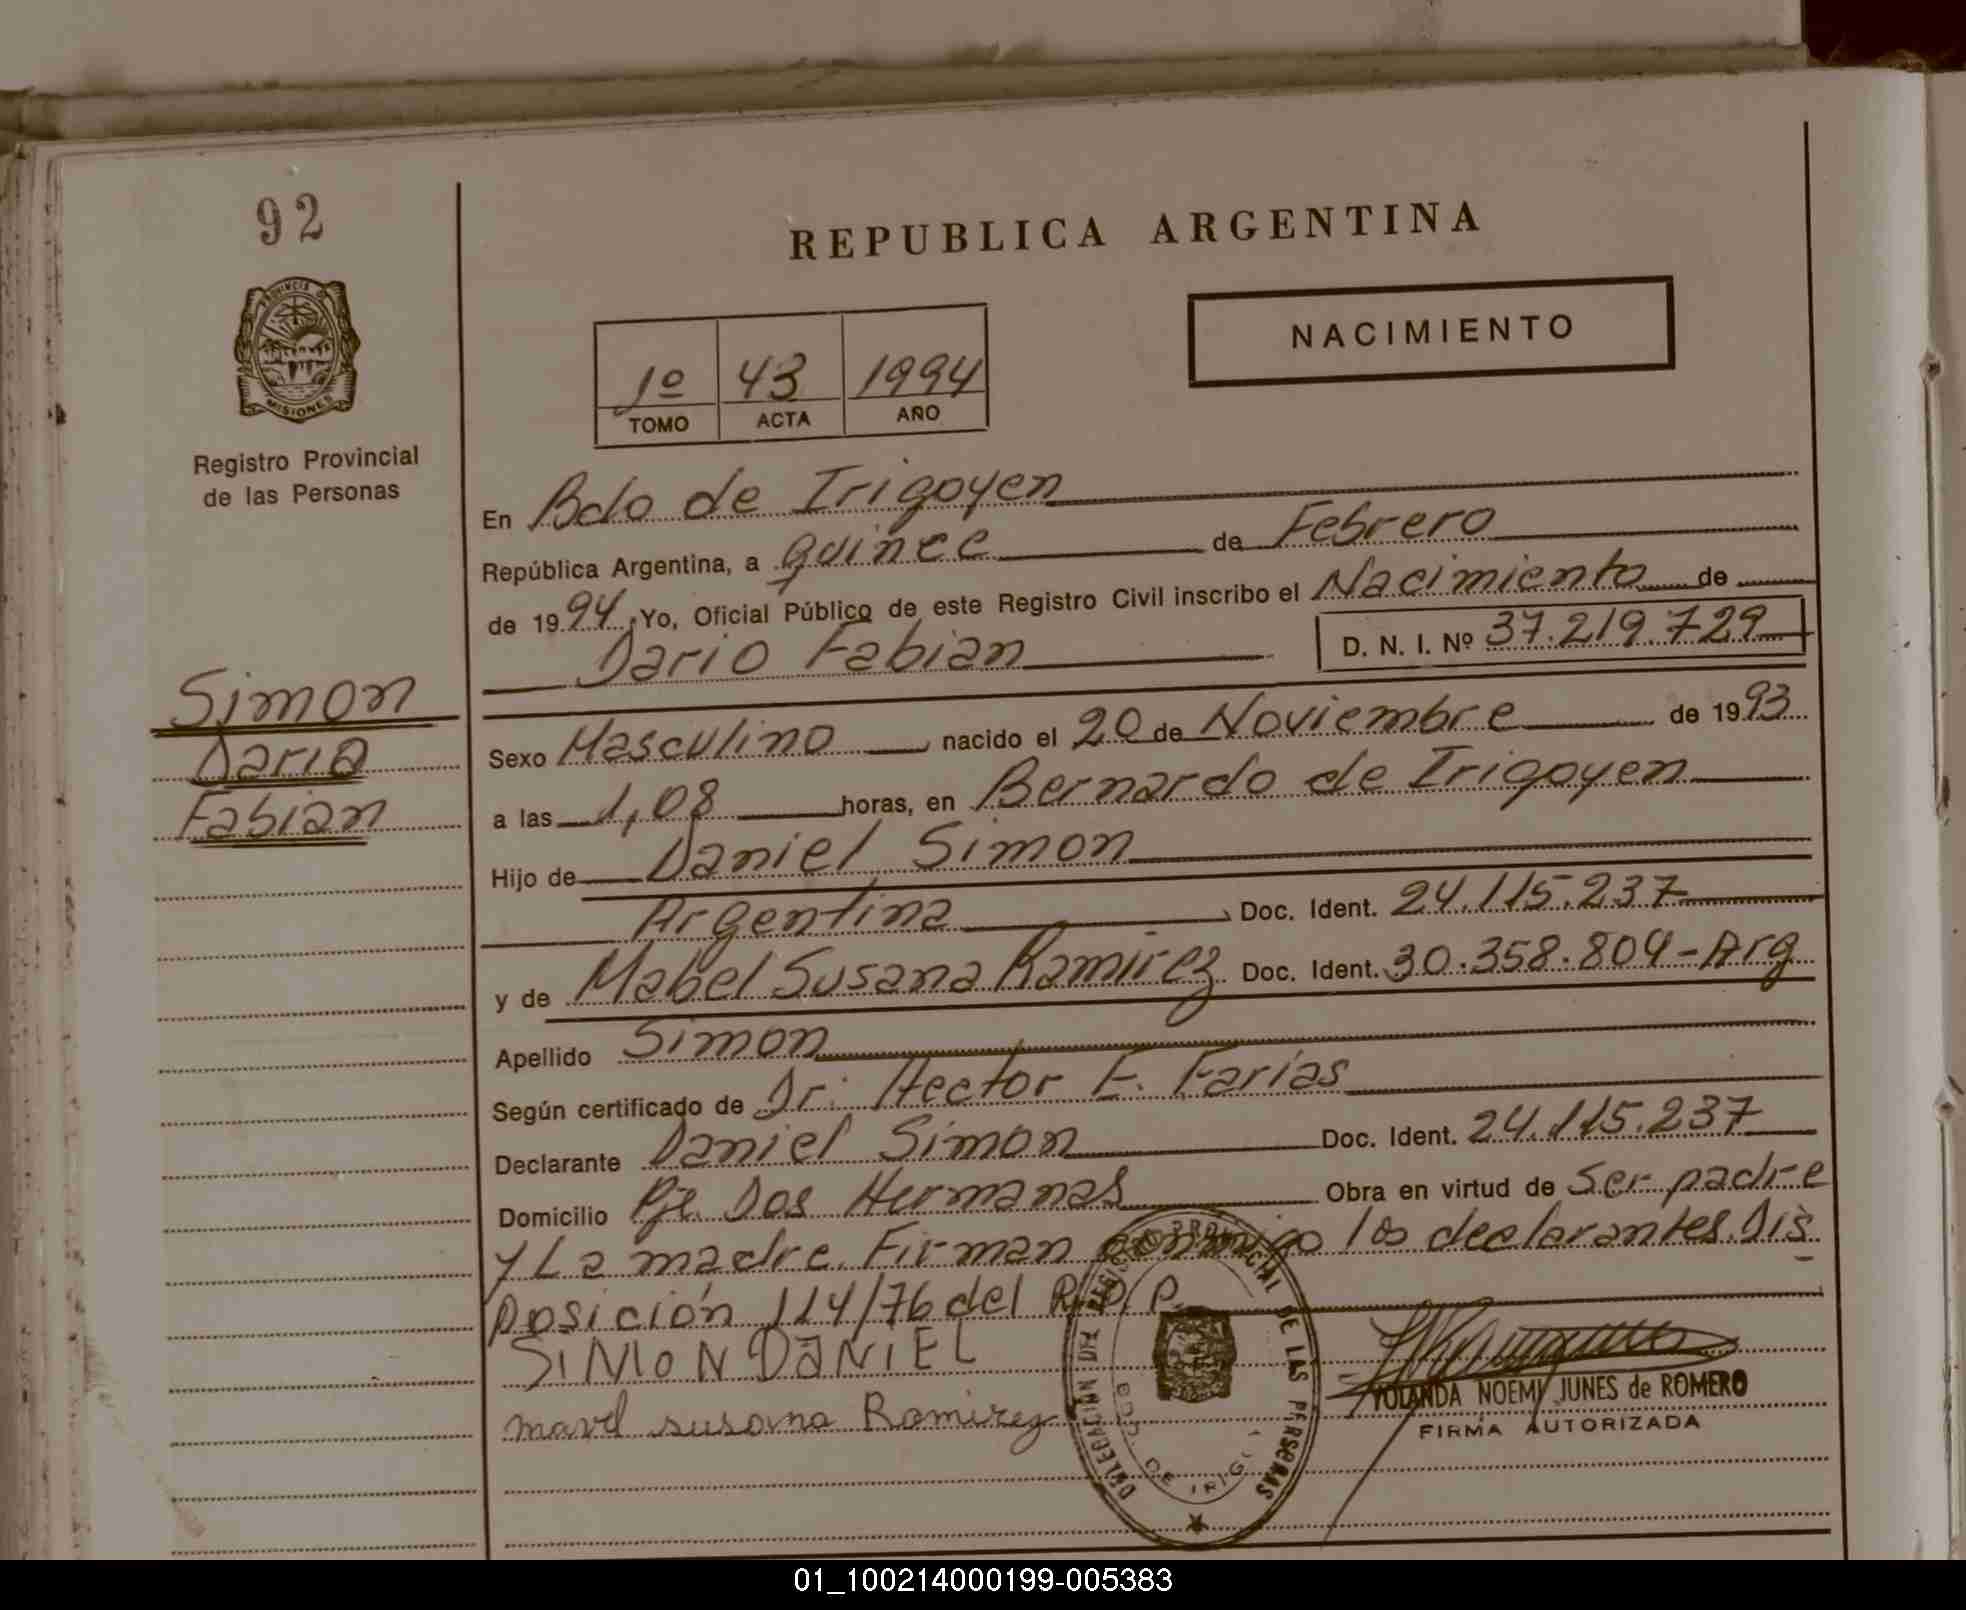 92
REPUBLICA ARGENTINA
NACIMIENTO
1º 43 1994
TOMO ACTA AÑO
PROVINCIA DE
MISIONES
Registro Provincial
de las Personas
En Bdo de Irigoyen
República Argentina, a quince de Febrero
de 1994. Yo, Oficial Público de este Registro Civil inscribo el Nacimiento de
Dario Fabian D. N. I. Nº 37.219.729
Simon
Dario
Fabian
Sexo Masculino, nacido el 20 de Noviembre de 1993
a las 1,08 horas, en Bernardo de Irigoyen
Hijo de Daniel Simon
Argentina, Doc. Ident. 24.115.237
y de Mabel Susana Ramirez Doc. Ident. 30.358.804-Arg
Apellido Simon
Según certificado de Dr: Hector E. Farías
Declarante Daniel Simon Doc. Ident. 24.115.237
Domicilio Pje. Dos Hermanas Obra en virtud de Ser padre
y La madre. Firman conmigo los declarantes. Dis
posición 114/76 del R.P.P.
SiMON DaNiEL
mavel susana Ramirez
DELEGACION DEL REGISTRO PROVINCIAL DE LAS PERSONAS
BDO. DE IRIGOY
YOLANDA NOEMI JUNES de ROMERO
FIRMA AUTORIZADA
01_100214000199-005383